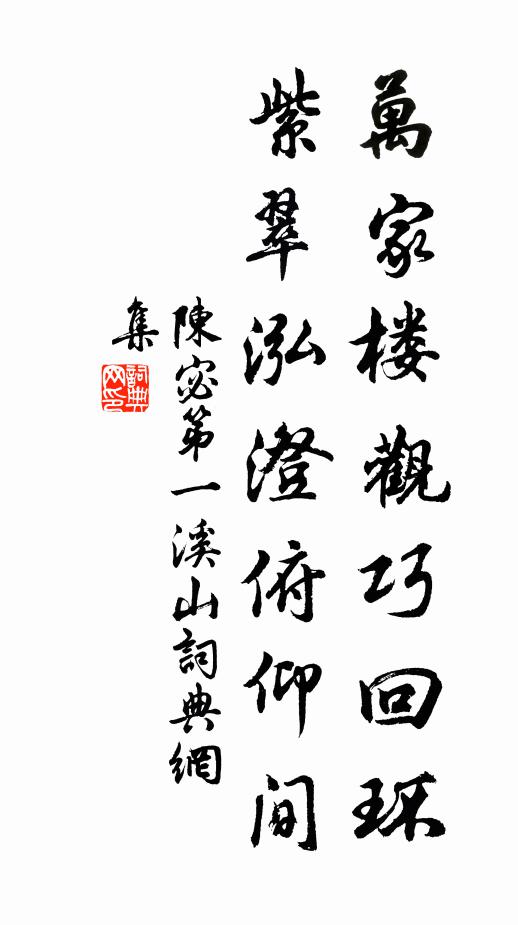 萬家楼觀巧回环
紫翠泓澄俯仰间
陳宓第一溪山詞典網
集
詞典网印